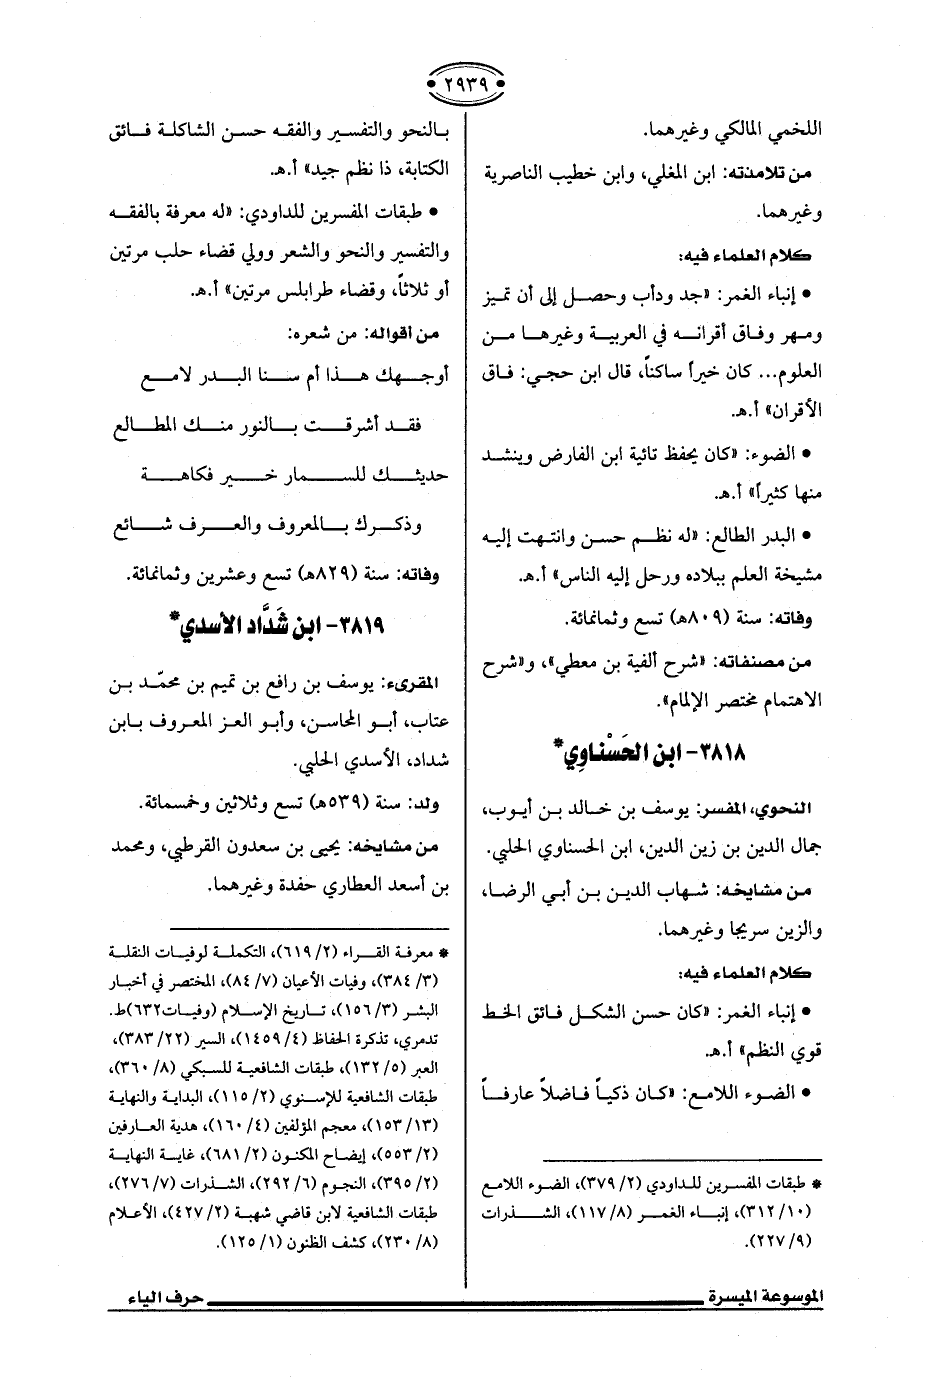 • ٢٩٣٩ •
اللخمي المالكي وغيرهما.
من تلامذته: ابن المغلي، وابن خطيب الناصرية
وغيرهما.
كلام العلماء فيه:
• إنباء الغمر: «جد ودأب وحصل إلى أن تميز
ومهر وفاق أقرانه في العربية وغيرها من
العلوم... كان خيراً ساكناً، قال ابن حجي: فاق
الأقران» أ.هـ.
• الضوء: «كان يحفظ تائية ابن الفارض وينشد
منها كثيراً» أ.هـ.
• البدر الطالع: «له نظم حسن وانتهت إليه
مشيخة العلم ببلاده ورحل إليه الناس» أ.هـ.
وفاته: سنة (٨٠٩هـ) تسع وثمانمائة.
من مصنفاته: «شرح ألفية بن معطي»، و«شرح
الاهتمام مختصر الإلمام».
٣٨١٨- ابن الحَسْناوِي*
النحوي، المفسر: يوسف بن خالد بن أيوب،
جمال الدين بن زين الدين، ابن الحسناوي الحلبي.
من مشايخه: شهاب الدين بن أبي الرضا،
والزين سريجا وغيرهما.
كلام العلماء فيه:
• إنباء الغمر: «كان حسن الشكل فائق الخط
قوي النظم» أ.هـ.
• الضوء اللامع: «كان ذكياً فاضلاً عارفاً
* طبقات المفسرين للداودي (٢/ ٣٧٩)، الضوء اللامع
(١٠/ ٣١٢)، إنباء الغمر (٨/ ١١٧)، الشذرات
(٩/ ٢٢٧).
بالنحو والتفسير والفقه حسن الشاكلة فائق
الكتابة، ذا نظم جيد» أ.هـ.
• طبقات المفسرين للداودي: «له معرفة بالفقه
والتفسير والنحو والشعر وولي قضاء حلب مرتين
أو ثلاثاً، وقضاء طرابلس مرتين» أ.هـ.
من أقواله: من شعره:
أوجهك هذا أم سنا البدر لامع
فقد أشرقت بالنور منك المطالع
حديثك للسمار خير فكاهة
وذكرك بالمعروف والعرف شائع
وفاته: سنة (٨٢٩هـ) تسع وعشرين وثمانمائة.
٣٨١٩- ابن شَدَّاد الأسدي*
المقرىء: يوسف بن رافع بن تميم بن محمّد بن
عتاب، أبو المحاسن، وأبو العز المعروف بابن
شداد، الأسدي الحلبي.
ولد: سنة (٥٣٩هـ) تسع وثلاثين وخمسمائة.
من مشايخه: يحيى بن سعدون القرطبي، ومحمد
بن أسعد العطاري حفدة وغيرهما.
* معرفة القراء (٢/ ٦١٩)، التكملة لوفيات النقلة
(٣/ ٣٨٤)، وفيات الأعيان (٧/ ٨٤)، المختصر في أخبار
البشر (٣/ ١٥٦)، تاريخ الإسلام (وفيات٦٣٢)ط.
تدمري، تذكرة الحفاظ (٤/ ١٤٥٩)، السير (٢٢/ ٣٨٣)،
العبر (٥/ ١٣٢)، طبقات الشافعية للسبكي (٨/ ٣٦٠)،
طبقات الشافعية للإسنوي (٢/ ١١٥)، البداية والنهاية
(١٣/ ١٥٣)، معجم المؤلفين (٤/ ١٦٠)، هدية العارفين
(٢/ ٥٥٣)، إيضاح المكنون (٢/ ٦٨١)، غاية النهاية
(٢/ ٣٩٥)، النجوم (٦/ ٢٩٢)، الشذرات (٧/ ٢٧٦)،
طبقات الشافعية لابن قاضي شهبة (٢/ ٤٢٧)، الأعلام
(٨/ ٢٣٠)، كشف الظنون (١/ ١٢٥).
الموسوعة الميسرة حرف الياء